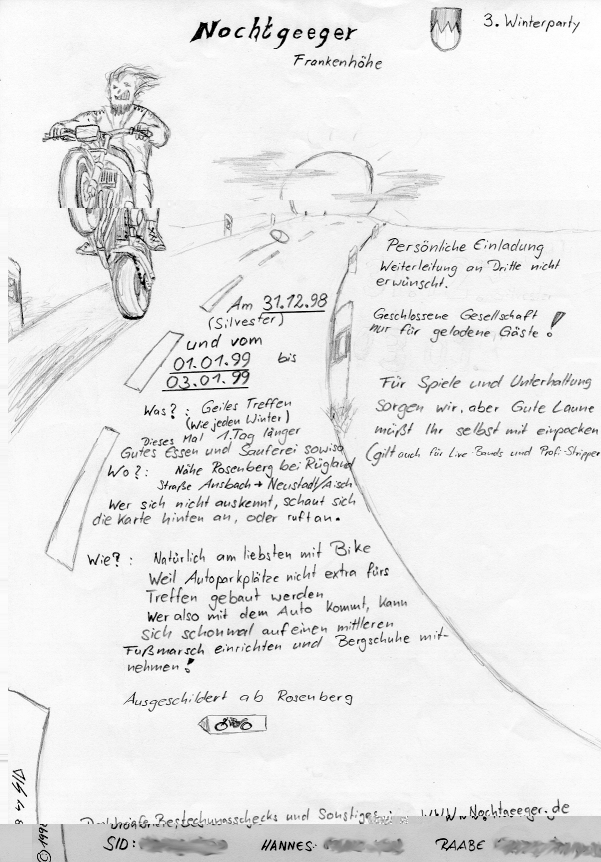 Nochtgeeger
Frankenhöhe
3. Winterparty
Persönliche Einladung
Weiterleitung an Dritte nicht
erwünscht.
Geschlossene Gesellschaft
nur für geladene Gäste!
Für Spiele und Unterhaltung
sorgen wir, aber Gute Laune
müßt Ihr selbst mit einpacken
(gilt auch für Live-Bands und Profi-Stripper
Am 31.12.98
(Silvester)
und vom
01.01.99 bis
03.01.99
Was?: Geiles Treffen
(wie jeden Winter)
Dieses Mal 1.Tag länger
Gutes Essen und Sauferei sowiso
Wo?: Nähe Rosenberg bei Rügland
Straße Ansbach → Neustadt/Aisch
Wer sich nicht auskennt, schaut sich
die Karte hinten an, oder ruft an.
Wie?: Natürlich am liebsten mit Bike
Weil Autoparkplätze nicht extra fürs
Treffen gebaut werden
Wer also mit dem Auto kommt, kann
sich schonmal auf einen mittleren
Fußmarsch einrichten und Bergschuhe mit-
nehmen!
Ausgeschildert ab Rosenberg
und Sonstiges WWW.Nochtgeeger.de
SID: HANNES: RAABE